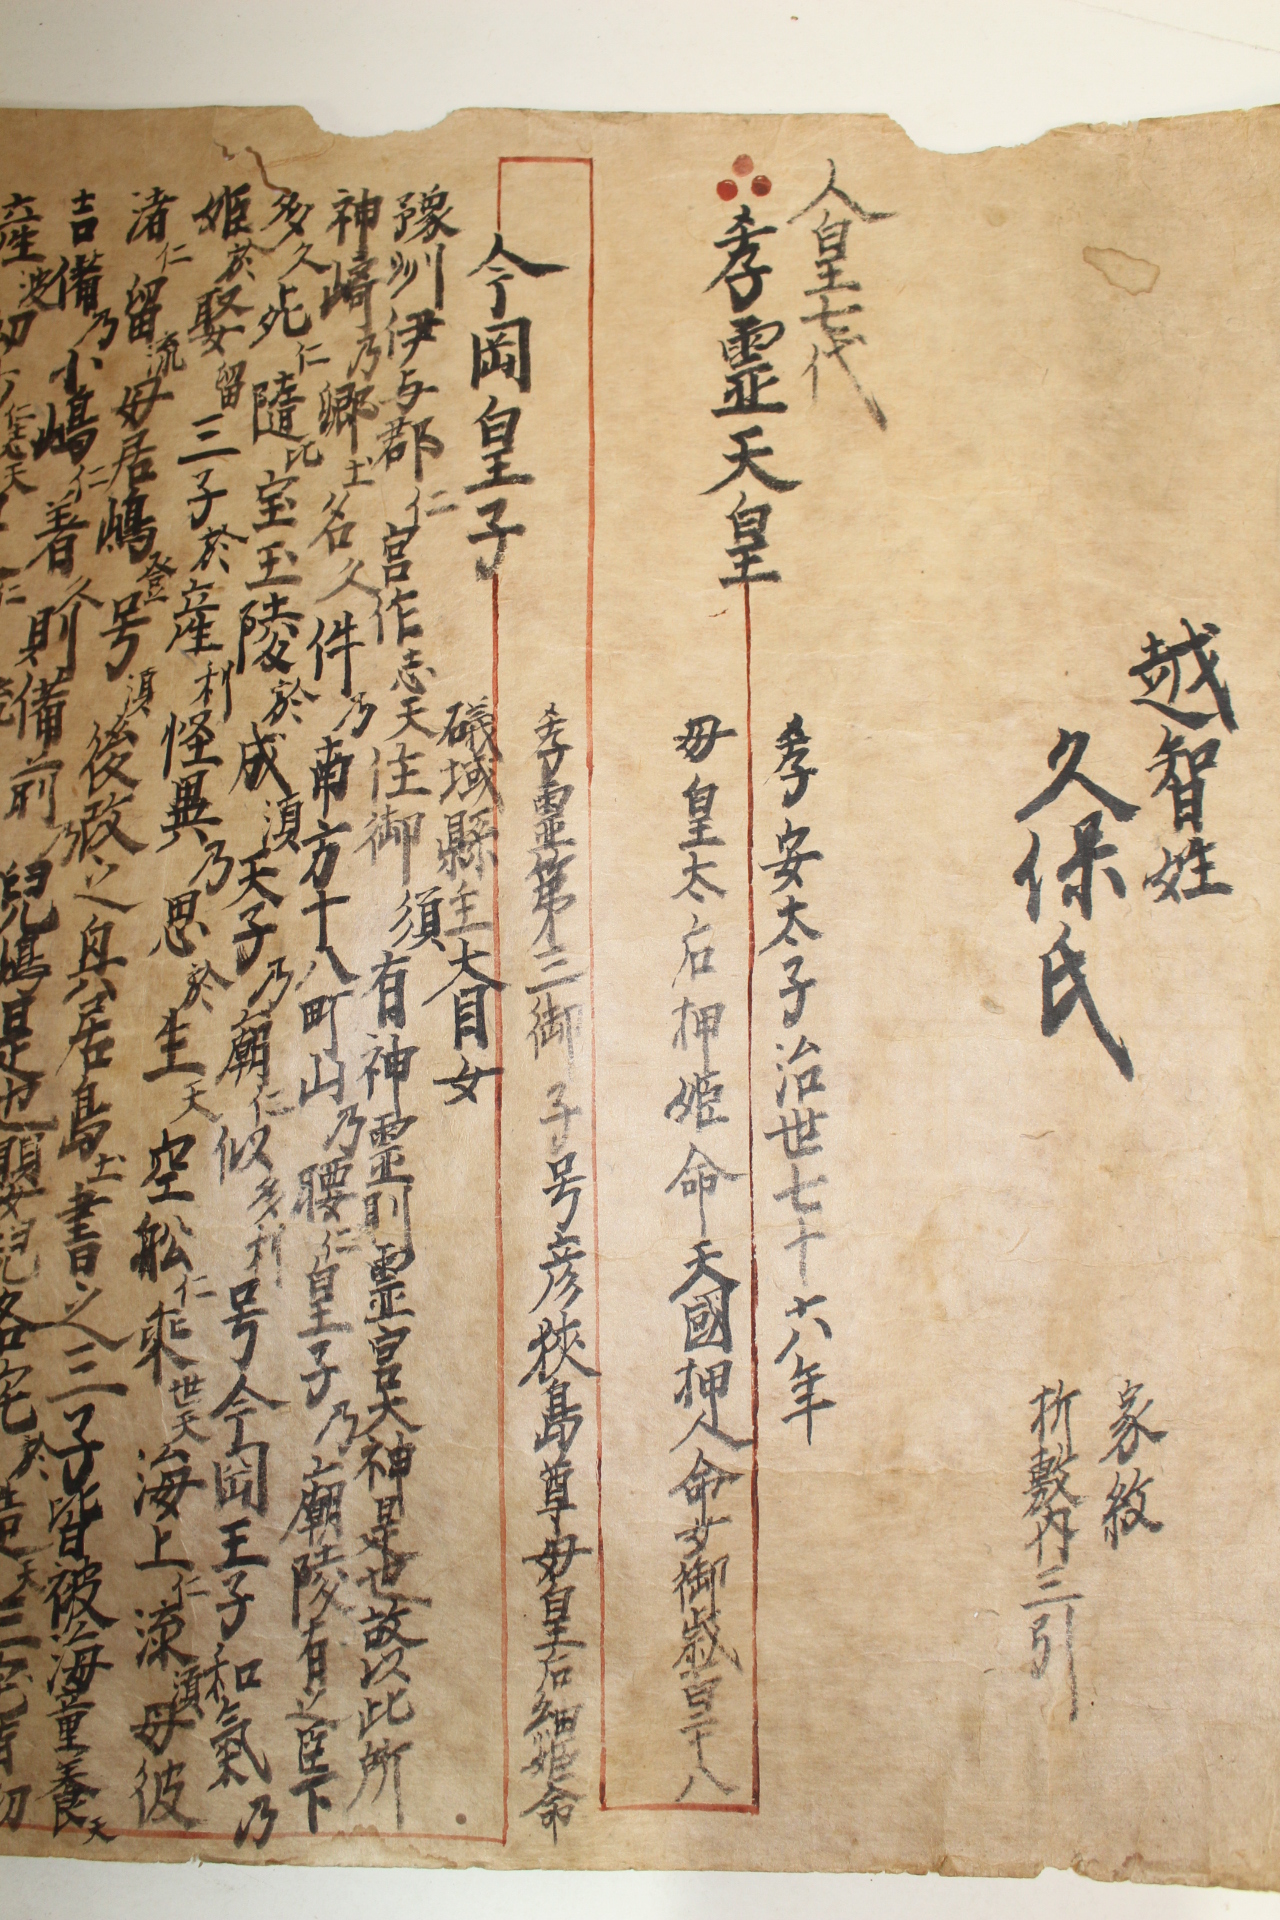 越智姓
久保氏
家紋
折敷内三引
人皇七代
孝靈天皇
孝安太子治世七十六八年
母皇太后押姫命天國押人命女御歳百二十八
今岡皇子
孝霊第三御子号彦狭島尊母皇后細姫命
磯城縣主大目女
豫州伊与郡仁宮作志天住御須有神霊則霊宮大神是也故以此所
神崎乃郷士名久件乃南方十八町山乃腰仁皇子乃廟陵有之臣下
多久死仁随比宝玉陵於成須天子乃廟仁似多利号今岡王子和氣乃
姫於娶留三子於産利怪異乃思於生天空舩仁乗世天海上仁流須母彼
渚仁留流母居嶋登号須後改之興居島士書之三子皆被海童養天
吉備乃小嶋仁着久則備前乃兒嶋是也嬰兒各宅於造天三宅